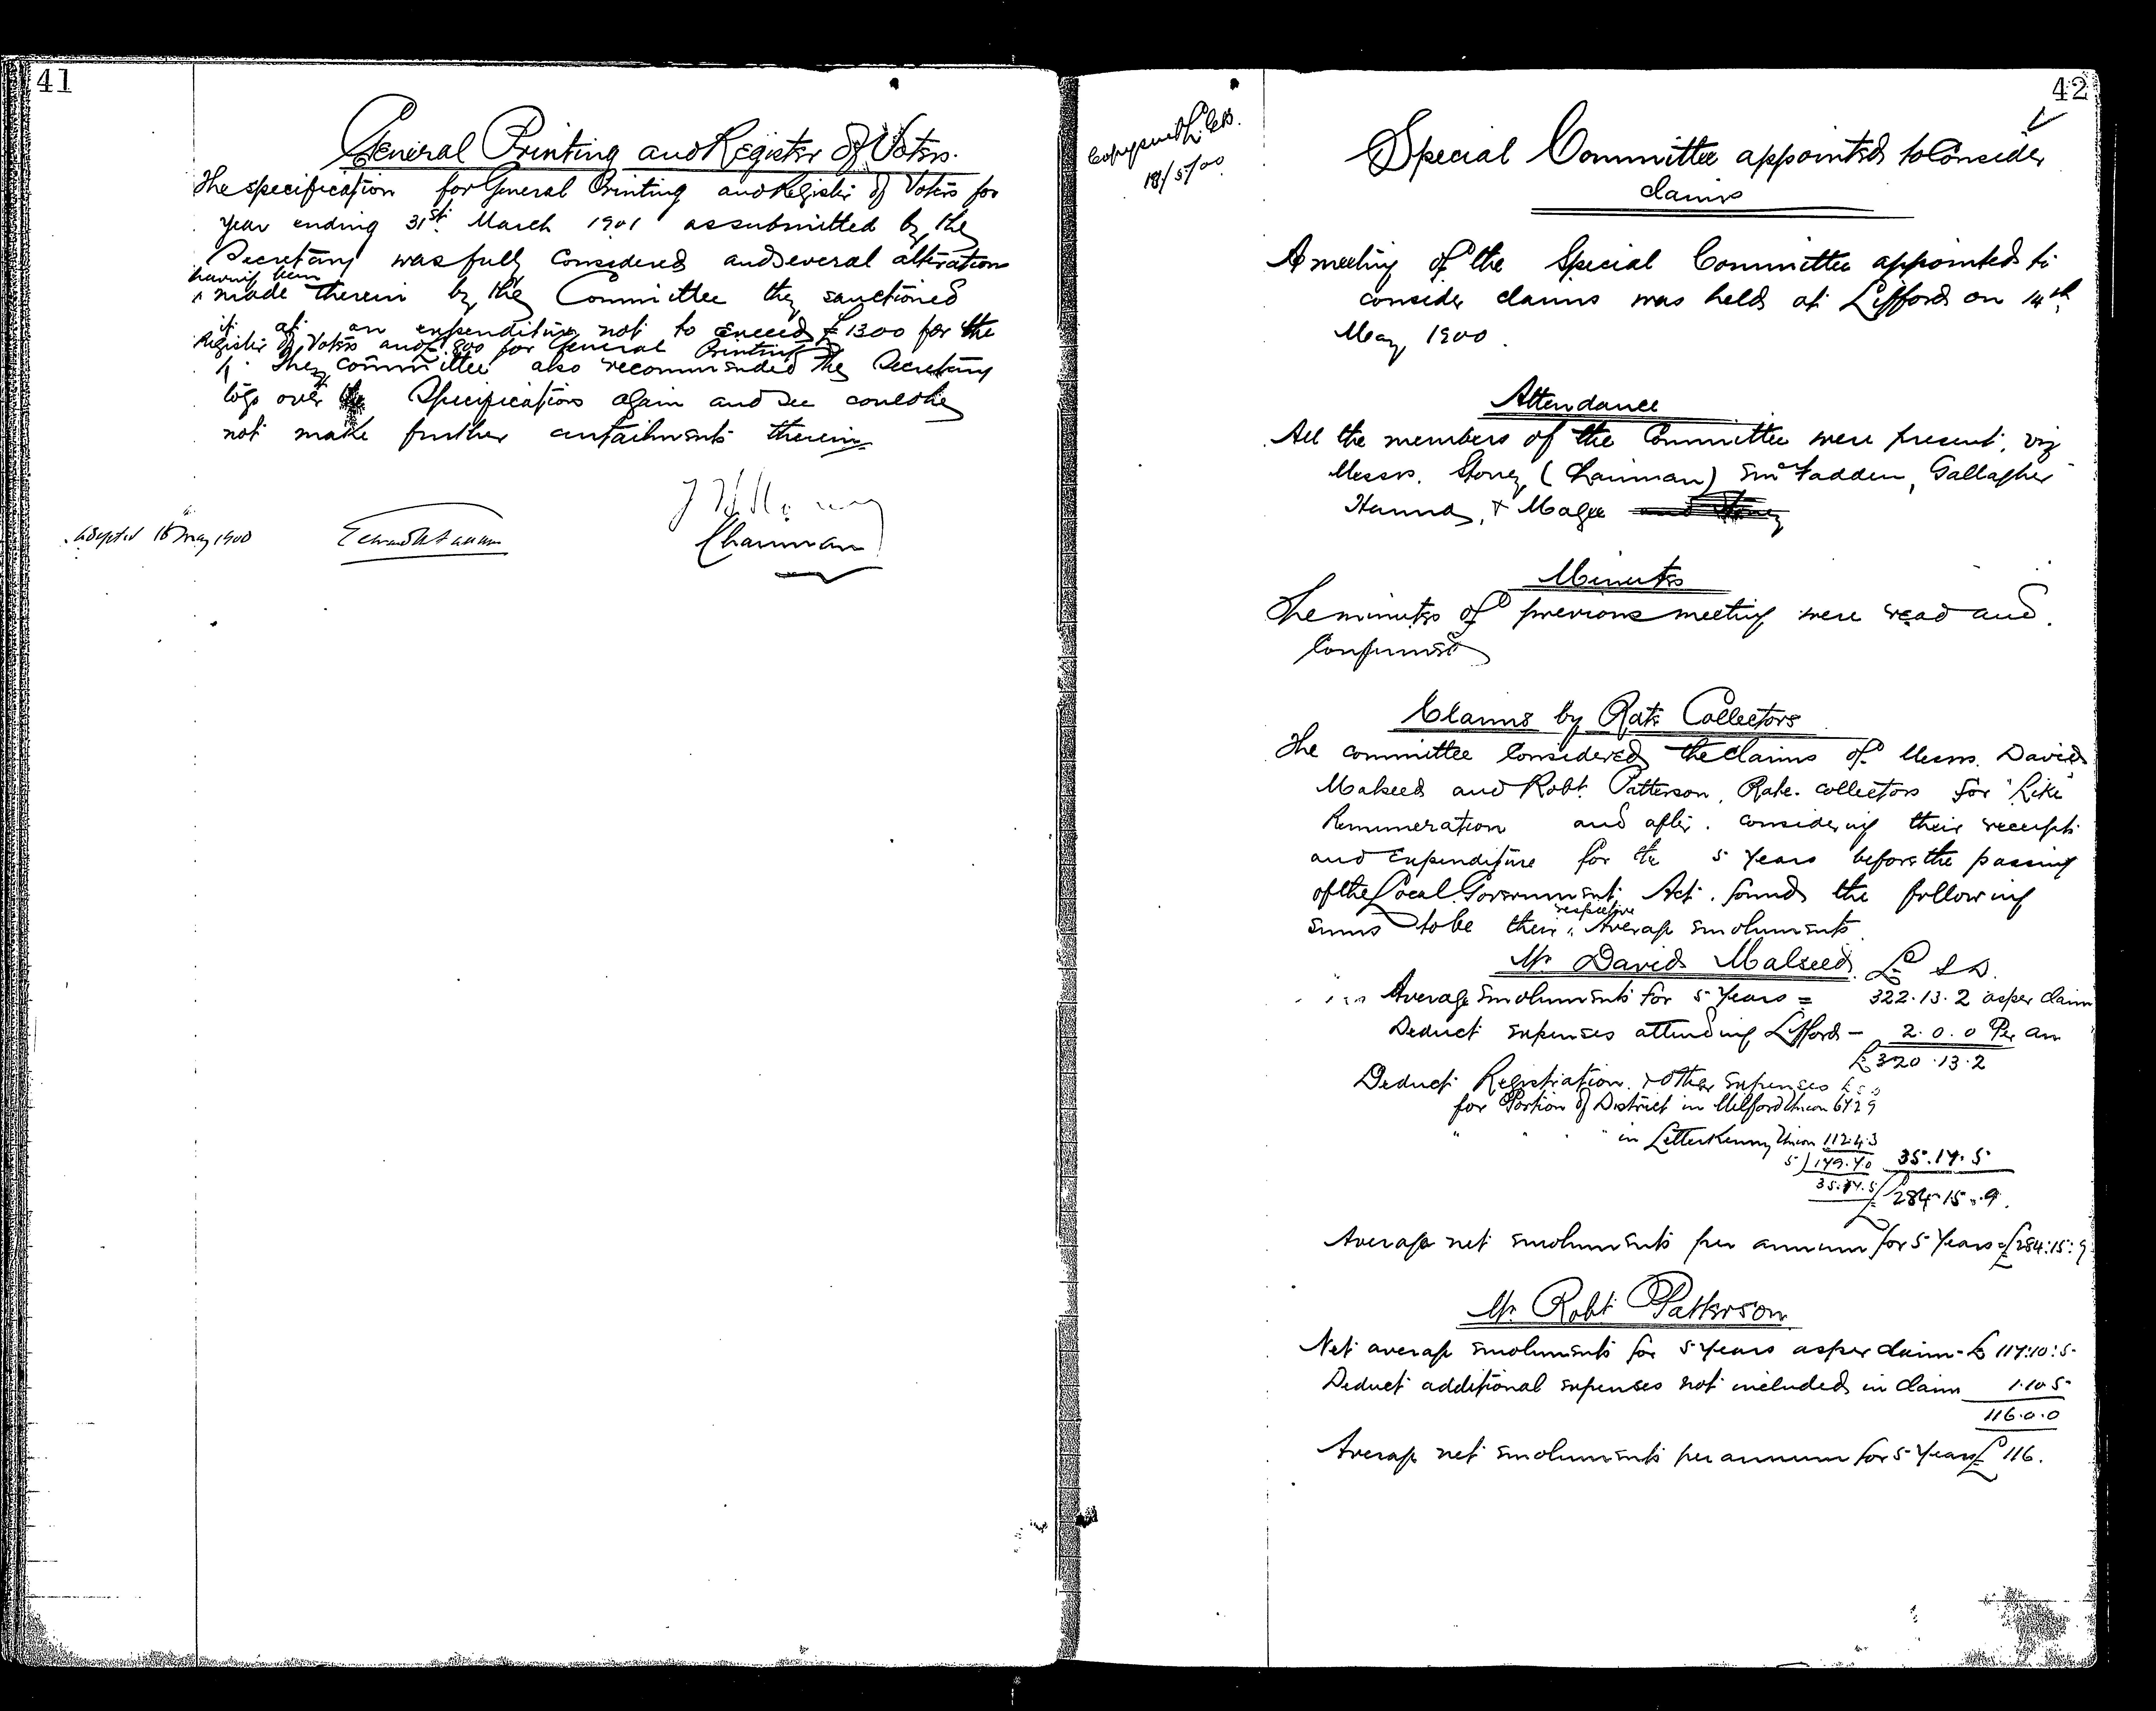 41
General Printing and Register of Voters.
The specification for General Printing and Register of Voters for
year ending 31st March 1901 as submitted by the
Secretary was fully considered and several alterations
having been
made therein by the Committee they sanctioned
it at an expenditure not to exceed £1300 for the
Register of Voters and £800 for General Printing
The Committee also recommended the Secretary
to go over the Specifications again and see could he
not make further curtailments therein
Chairman
adopted 15 May 1900
42
18/5/00
Special Committee appointed to Consider
Claims
A meeting of the Special Committee appointed to
consider claims was held at Lifford on 14th
May 1900.
Attendance
All the members of the Committee were present, viz
Messrs. Stoney, (Chairman) E McFadden, Gallagher
Hannah, & Magee and Stoney
Minutes
The minutes of previous meeting were read and
Confirmed
Claims by Rate Collectors
The committee Considered the claims of Messrs. David
Malseed and Robt. Patterson, Rate collectors for "Like"
Remuneration and after considering their receipts
and Expenditure for the 5 Years before the passing
of the Local Government Act. found the following
respective
sums to be their Average Emoluments
Mr David Malseed. £ S D.
Average Emoluments for 5 Years = 322.13.2 as per claim
Deduct expenses attending Lifford - 2.0.0 Per an
£320.13.2
Deduct Registration & other Expenses £ s d
for Portion of District in Milford Union 67 2 9
" " " " in Letterkenny Union 112.4.3
5)179.7.0 35.17.5
35.17.5 £284.15.9.
Average net emoluments per annum for 5 Years = £284:15:9
Mr. Robt Patterson
Net average emoluments for 5 Years as per claim - £117:10:5
Deduct additional expenses not included in Claim 1.10.5
116.0.0
Average net emoluments per annum for 5 Years £116.